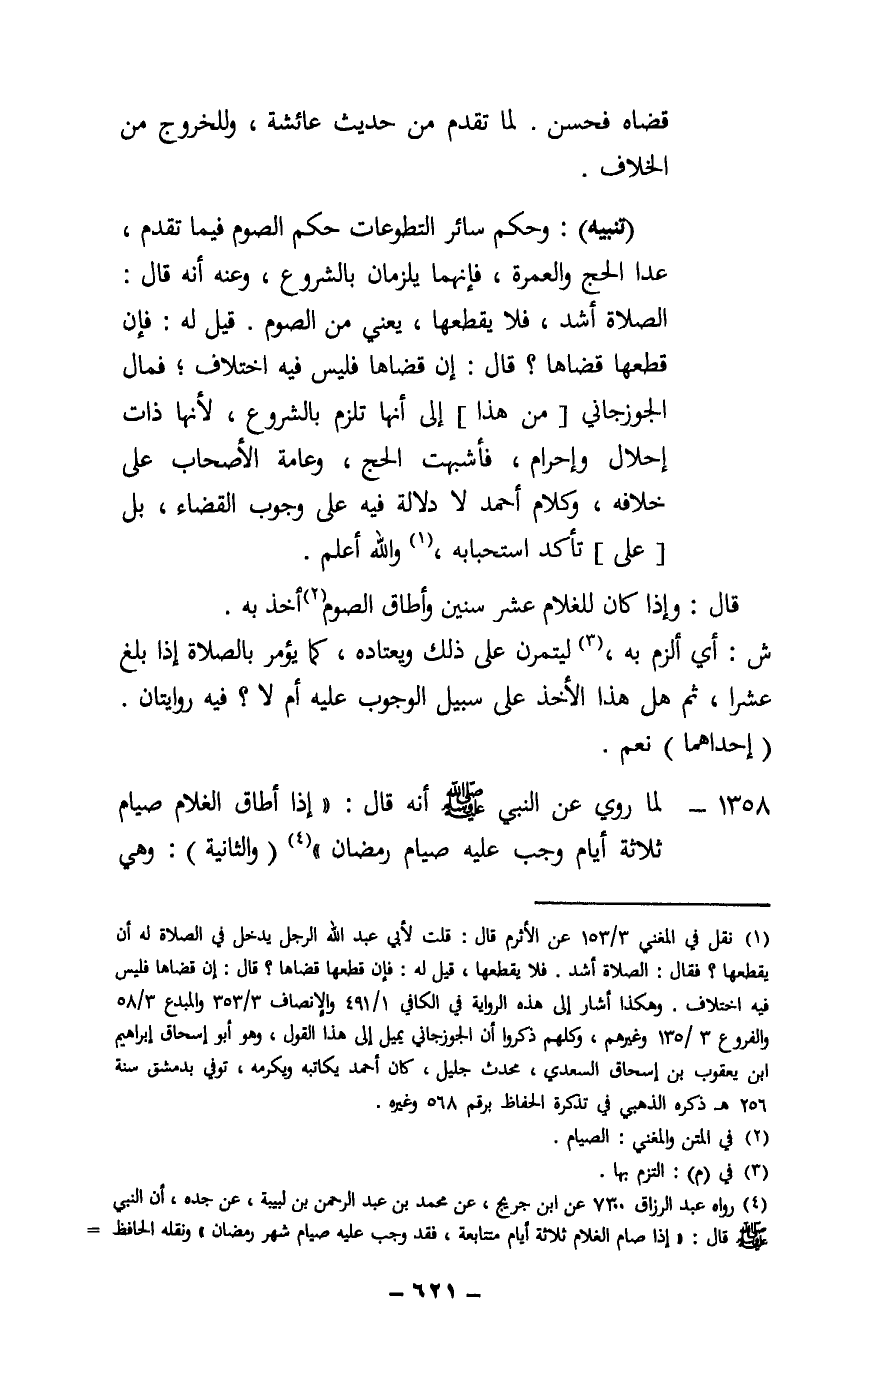 قضاه فحسن . لما تقدم من حديث عائشة ، وللخروج من
الخلاف .
(تنبيه) : وحكم سائر التطوعات حكم الصوم فيما تقدم ،
عدا الحج والعمرة ، فإنهما يلزمان بالشروع ، وعنه أنه قال :
الصلاة أشد ، فلا يقطعها ، يعني من الصوم . قيل له : فإن
قطعها قضاها ؟ قال : إن قضاها فليس فيه اختلاف ؛ فمال
الجوزجاني [ من هذا ] إلى أنها تلزم بالشروع ، لأنها ذات
إحلال وإحرام ، فأشبهت الحج ، وعامة الأصحاب على
خلافه ، وكلام أحمد لا دلالة فيه على وجوب القضاء ، بل
[ على ] تأكد استحبابه ،(١) والله أعلم .
قال : وإذا كان للغلام عشر سنين وأطاق الصوم(٢) أخذ به .
ش : أي ألزم به ،(٣) ليتمرن على ذلك ويعتاده ، كما يؤمر بالصلاة إذا بلغ
عشرا ، ثم هل هذا الأخذ على سبيل الوجوب عليه أم لا ؟ فيه روايتان .
( إحداهما ) نعم .
١٣٥٨ – لما روي عن النبي ﷺ أنه قال : « إذا أطاق الغلام صيام
ثلاثة أيام وجب عليه صيام رمضان »(٤) ( والثانية ) : وهي
(١) نقل في المغني ١٥٣/٣ عن الأثرم قال : قلت لأبي عبد الله الرجل يدخل في الصلاة له أن
يقطعها ؟ فقال : الصلاة أشد . فلا يقطعها ، قيل له : فإن قطعها قضاها ؟ قال : إن قضاها فليس
فيه اختلاف . وهكذا أشار إلى هذه الرواية في الكافي ٤٩١/١ والإنصاف ٣٥٣/٣ والمبدع ٥٨/٣
والفروع ٣ /١٣٥ وغيرهم ، وكلهم ذكروا أن الجوزجاني يميل إلى هذا القول ، وهو أبو إسحاق إبراهيم
ابن يعقوب بن إسحاق السعدي ، محدث جليل ، كان أحمد يكاتبه ويكرمه ، توفي بدمشق سنة
٢٥٦ هـ ذكره الذهبي في تذكرة الحفاظ برقم ٥٦٨ وغيره .
(٢) في المتن والمغني : الصيام .
(٣) في (م) : التزم بها .
(٤) رواه عبد الرزاق ٧٣٠٠ عن ابن جريج ، عن محمد بن عبد الرحمن بن لبيبة ، عن جده ، أن النبي
ﷺ قال : « إذا صام الغلام ثلاثة أيام متتابعة ، فقد وجب عليه صيام شهر رمضان » ونقله الحافظ =
– ٦٢١ –